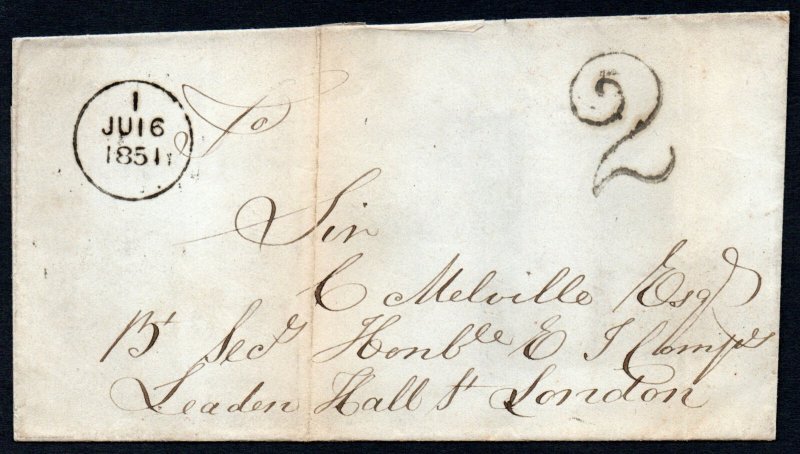 1
JU 16
1851
2
To
Sir
C Melville Esqr
Secy Honble E I Compys
Leaden Hall St London